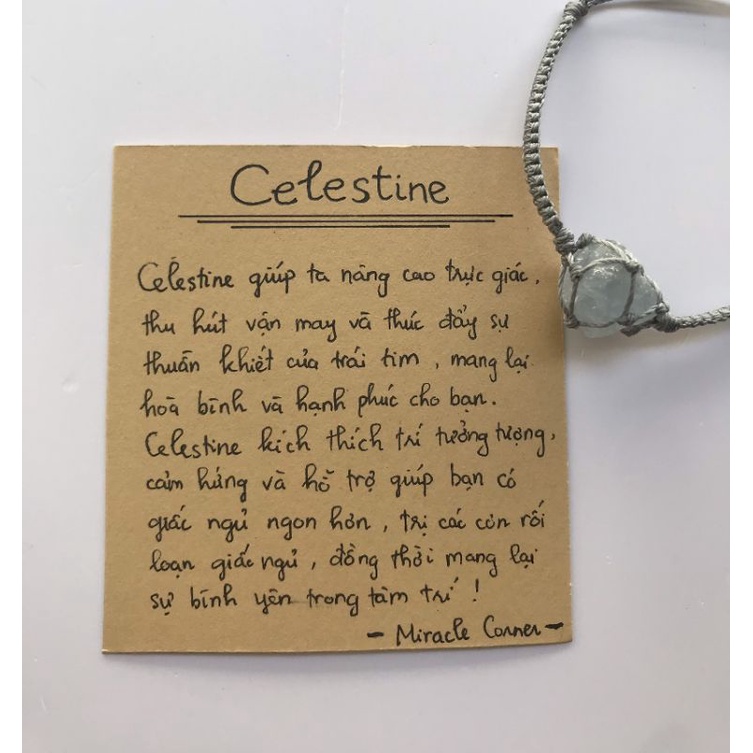 Celestine
Celestine giúp ta nâng cao trực giác,
thu hút vận may và thúc đẩy sự
thuần khiết của trái tim, mang lại
hoà bình và hạnh phúc cho bạn.
Celestine kích thích trí tưởng tượng,
cảm hứng và hỗ trợ giúp bạn có
giấc ngủ ngon hơn, trị các cơn rối
loạn giấc ngủ, đồng thời mang lại
sự bình yên trong tâm trí!
- Miracle Corner -